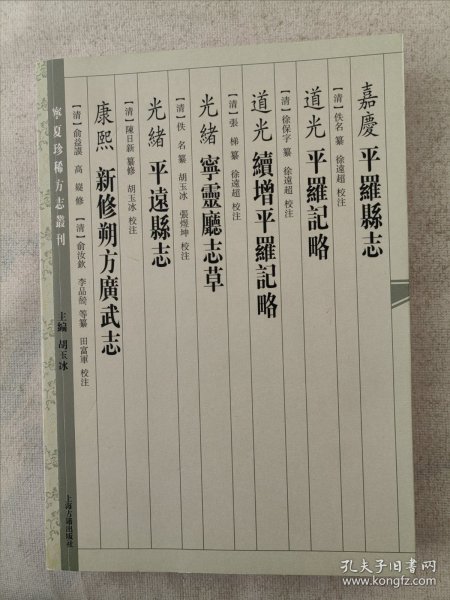 嘉慶 平羅縣志
【清】佚名 纂 徐遠超 校注
道光 平羅記略
【清】徐保字 纂 徐遠超 校注
道光 續增平羅記略
【清】張 梯 纂 徐遠超 校注
光緒 寧靈廳志草
【清】佚 名 纂 胡玉冰 張煜坤 校注
光緒 平遠縣志
【清】陳日新 纂修 胡玉冰 校注
康熙 新修朔方廣武志
【清】俞益謨 高 嶷 修 【清】俞汝欽 李品㒜 等纂 田富軍 校注
寧夏珍稀方志叢刊
主編 胡玉冰
上海古籍出版社
孔夫子旧书网
www.kongfz.com